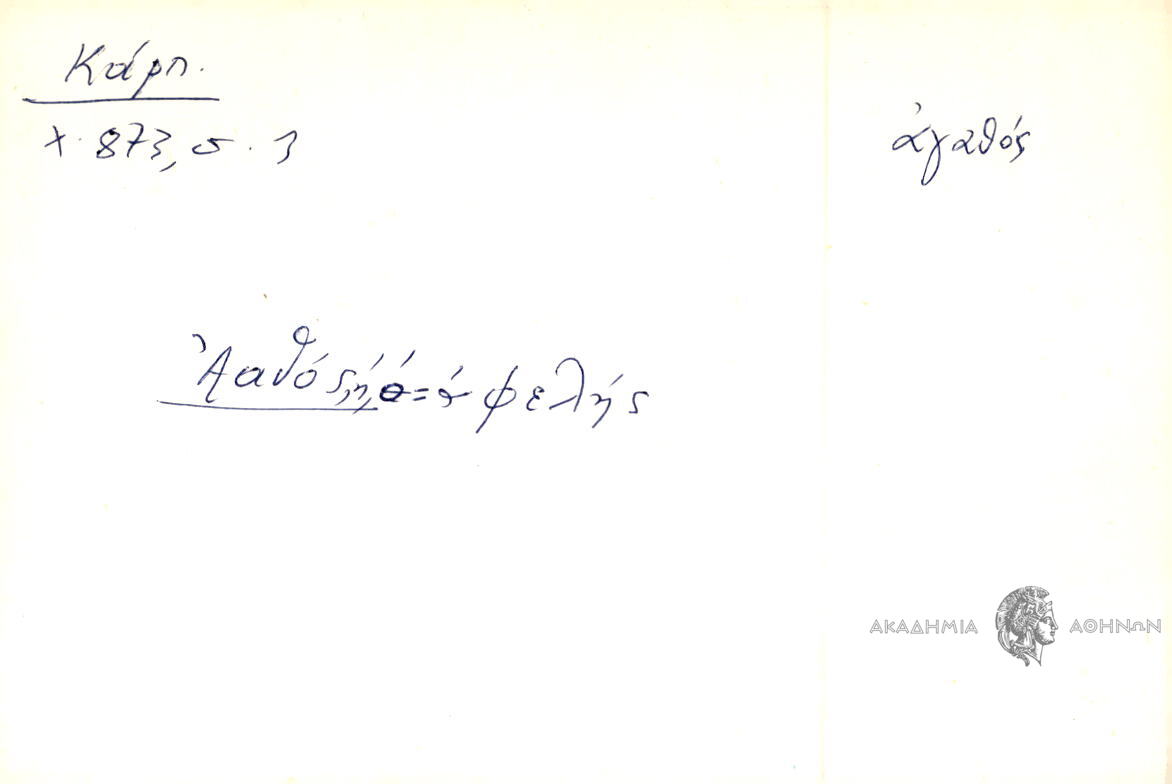 Κάρπ.
χ. 873, σ. 1
ἀγαθός
Ἀαθός, ή, ό = ἀφελής
ΑΚΑΔΗΜΙΑ ΑΘΗΝΩΝ